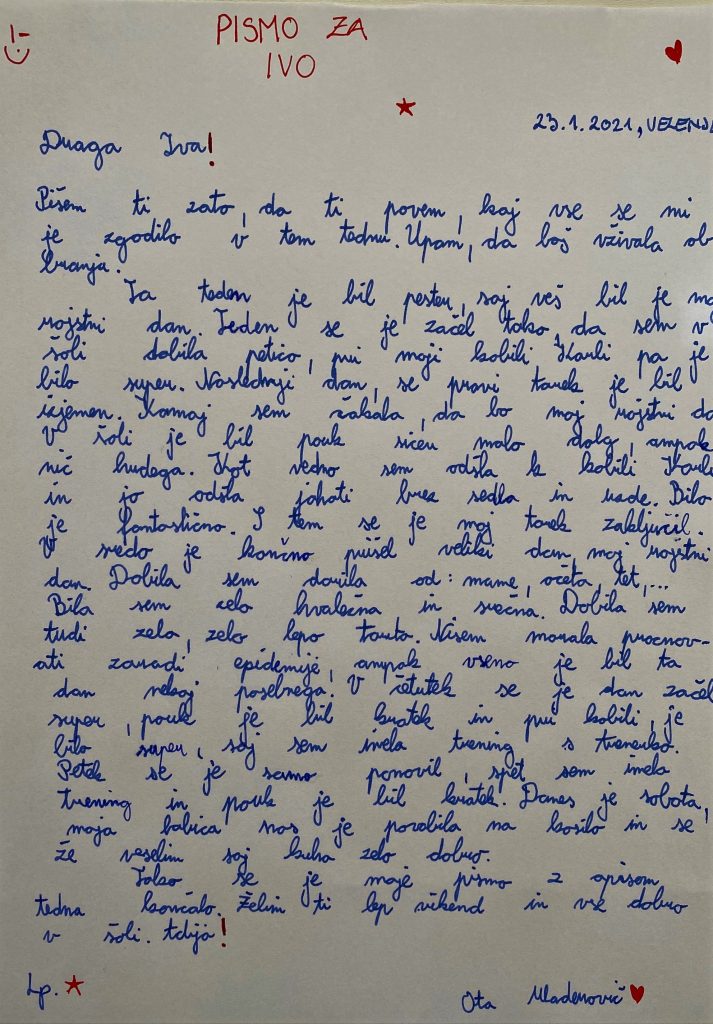 PISMO ZA
IVO
23.1.2021, VELENJE
Draga Iva!
Pišem ti zato, da ti povem, kaj vse se mi
je zgodilo v tem tednu. Upam, da boš uživala ob
branju.
Ta teden je bil pester, saj veš bil je moj
rojstni dan. Teden se je začel tako, da sem v
šoli dobila petico, pri moji kobili Karli pa je
bilo super. Naslednji dan, se pravi torek je bil
izjemen. Komaj sem čakala, da bo moj rojstni dan.
V šoli je bil pouk sicer malo dolg, ampak
nič hudega. Kot vedno sem odšla k kobili Karli
in jo odšla jahati brez sedla in uzde. Bilo
je fantastično. S tem se je moj torek zaključil.
V sredo je končno prišel veliki dan, moj rojstni
dan. Dobila sem darila od: mame, očeta, tet,...
Bila sem zelo hvaležna in srečna. Dobila sem
tudi zelo, zelo lepo torto. Nisem morala praznov-
ati zaradi epidemije, ampak vseno je bil ta
dan nekaj posebnega. V četrtek se je dan začel
super, pouk je bil kratek in pri kobili, je
bilo super, saj sem imela trening s trenerko.
Petek se je samo ponovil, spet sem imela
trening in pouk je bil kratek. Danes je sobota,
moja babica nas je povabila na kosilo in se
že veselim saj kuha zelo dobro.
Tako se je moje pismo z opisom
tedna končalo. Želim ti lep vikend in vse dobro
v šoli. tdija!
Lp.
Ota Mladenović